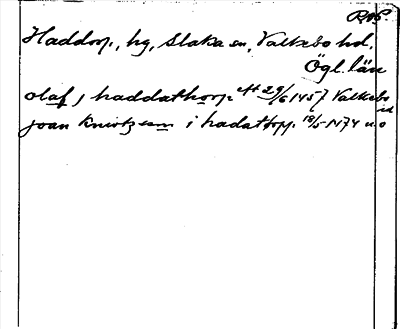 Haddorp, hg, Slaka sn, Valkebo hd,
Ögl. län
olaf j haddathorp eft 29/6 1457 Valkebo
joan knwtzsam i hadathorp 18/5 1474 u o